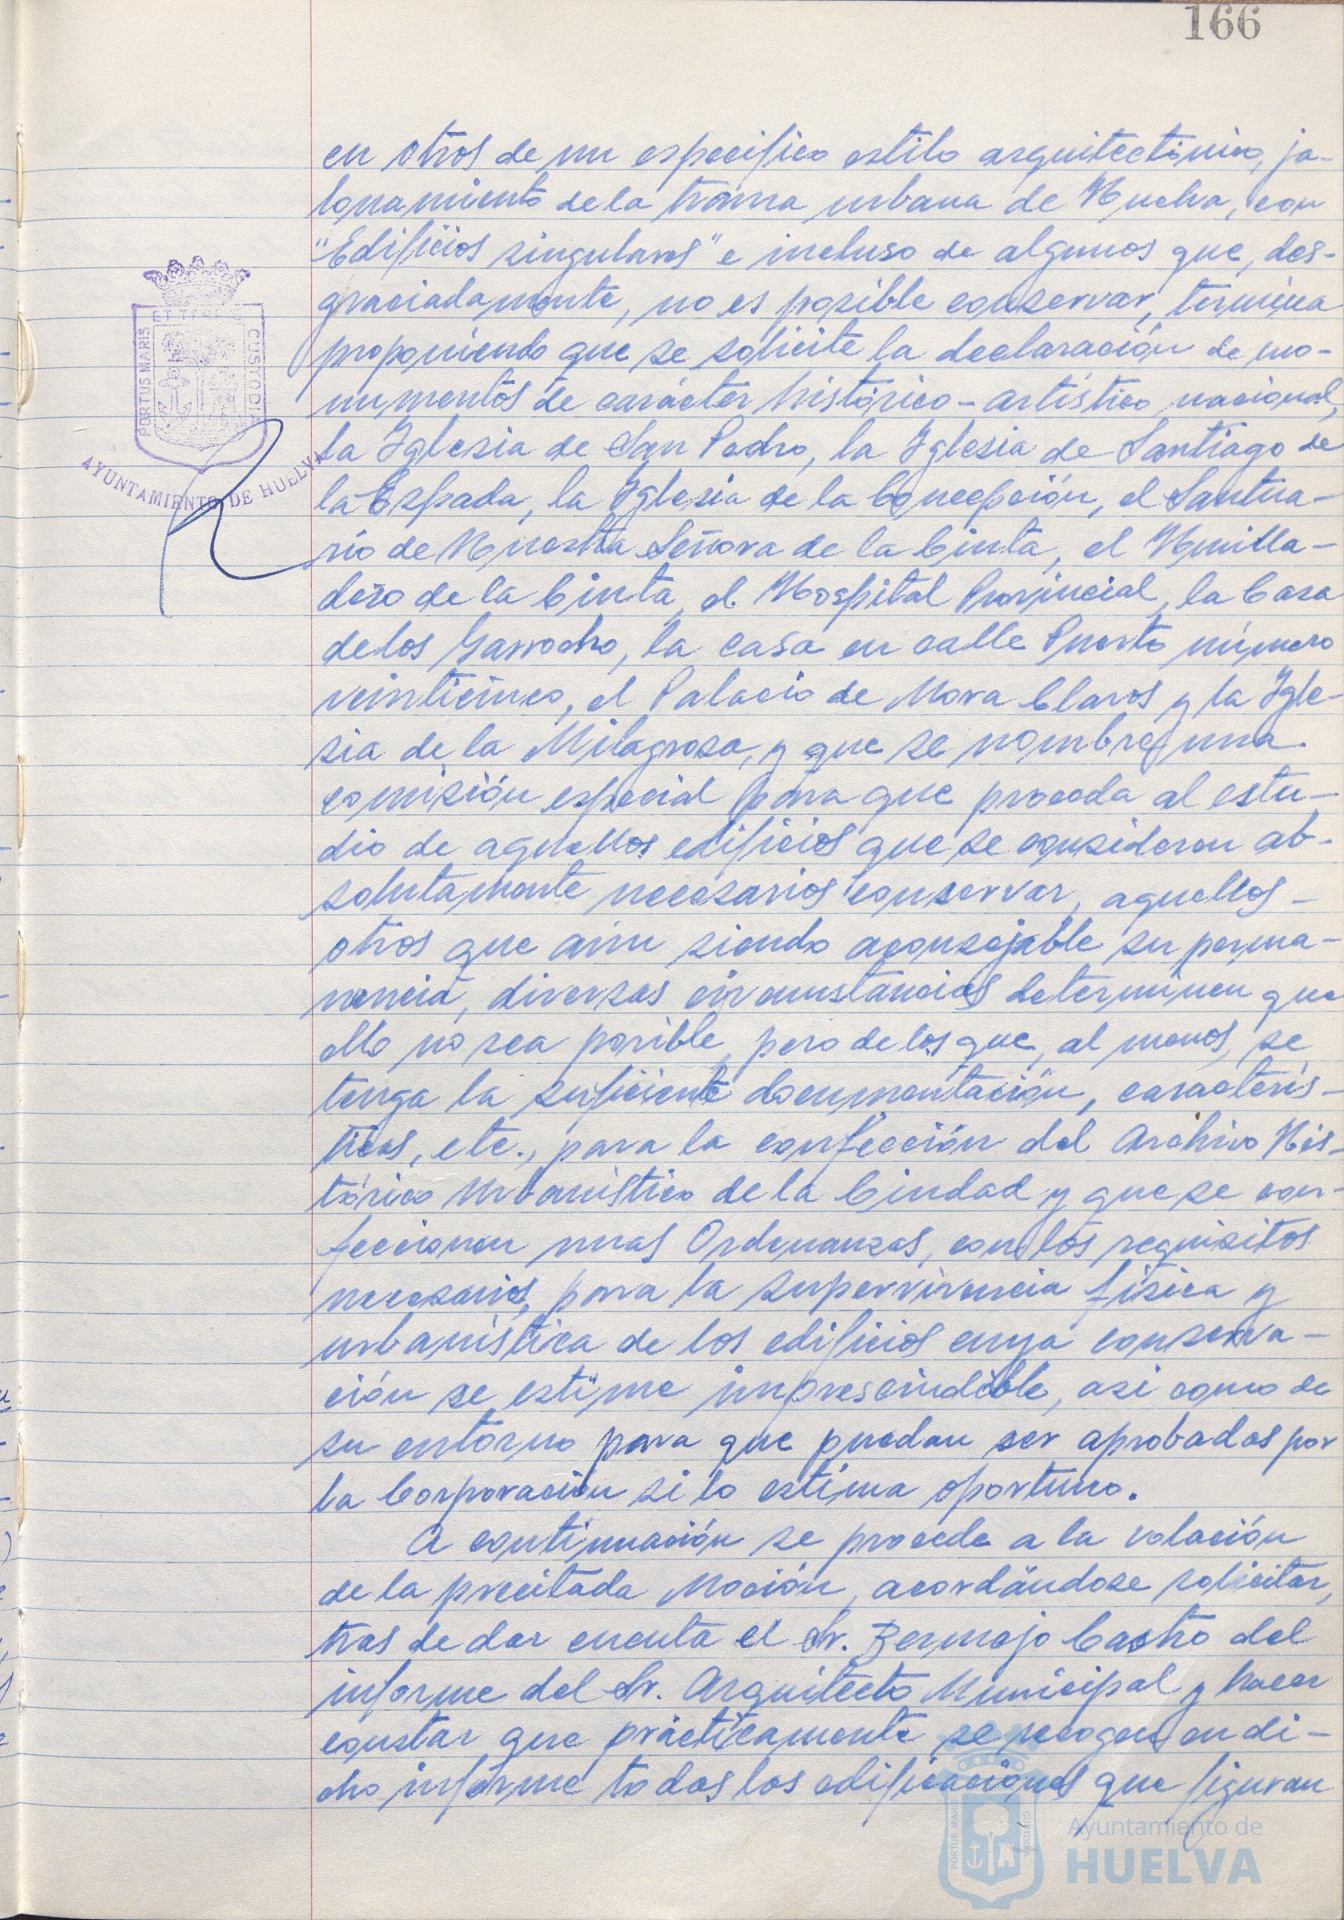 166
en otros de un especifico estilo arquitectónico, ja-
lonamiento de la trama urbana de Huelva, con
"Edificios singulares" e incluso de algunos que, des-
graciadamente, no es posible conservar, termina
proponiendo que se solicite la declaración de mo-
numentos de carácter histórico-artístico nacional,
la Iglesia de San Pedro, la Iglesia de Santiago de
la Espada, la Iglesia de la Concepción, el Santua-
rio de Nuestra Señora de la Cinta, el Humilla-
dero de la Cinta, el Hospital Provincial, la Casa
de los Garrocho, la casa en calle Puerto número
veinticinco, el Palacio de Mora Claros y la Igle-
sia de la Milagrosa, y que se nombre una
comisión especial para que proceda al estu-
dio de aquellos edificios que se consideren ab-
solutamente necesarios conservar, aquellos
otros que aún siendo aconsejable su perma-
nencia, diversas circunstancias determinen que
ello no sea posible, pero de los que, al menos, se
tenga la suficiente documentación, caracterís-
ticas, etc., para la confección del Archivo His-
tórico Urbanístico de la Ciudad y que se con-
feccionen unas Ordenanzas, con los requisitos
necesarios, para la supervivencia física y
urbanística de los edificios cuya conserva-
ción se estime imprescindible, asi como de
su entorno para que puedan ser aprobadas por
la Corporación si lo estima oportuno.
A continuación se procede a la votación
de la precitada Moción, acordándose solicitar,
tras de dar cuenta el Sr. Bermejo Castro del
informe del Sr. Arquitecto Municipal y hacer
constar que prácticamente se recogen en di-
cho informe todas las edificaciones que figuran
PORTUS MARIS ET TERRE CUSTODIA
AYUNTAMIENTO DE HUELVA
PORTUS MARIS
CUSTODIA
Ayuntamiento de
HUELVA